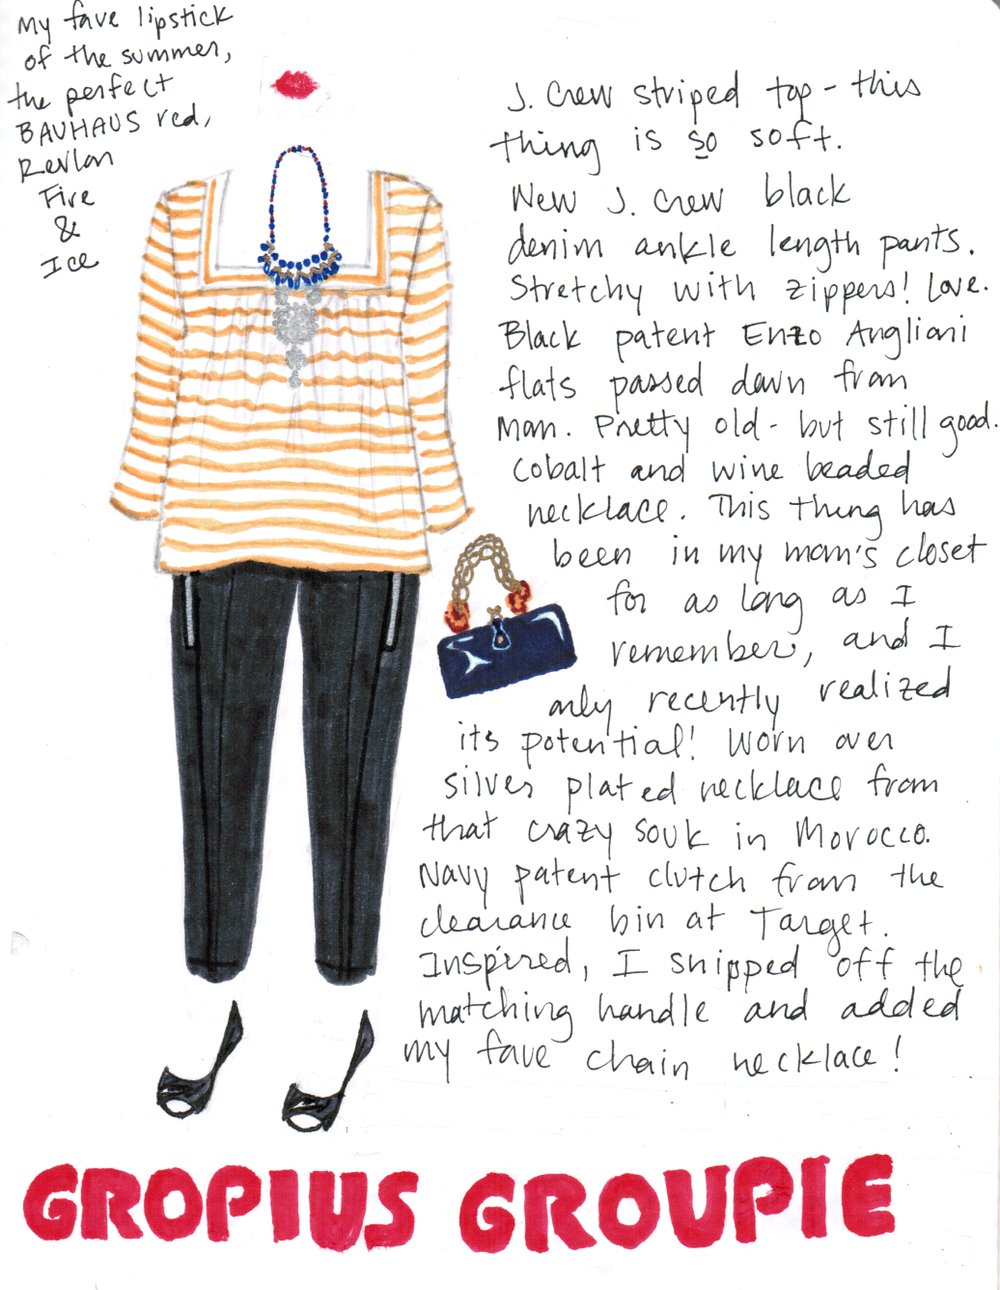 My fave lipstick
of the summer,
the perfect
BAUHAUS red,
Revlon
Fire
&
Ice
J. Crew striped top - this
thing is so soft.
New J. Crew black
denim ankle length pants.
Stretchy with zippers! Love.
Black patent Enzo Angliani
flats passed down from
Mom. Pretty old - but still good.
Cobalt and wine beaded
necklace. This thing has
been in my mom's closet
for as long as I
remember, and I
only recently realized
its potential! Worn over
silver plated necklace from
that crazy souk in Morocco.
Navy patent clutch from the
clearance bin at Target.
Inspired, I snipped off the
matching handle and added
my fave chain necklace!
GROPIUS GROUPIE